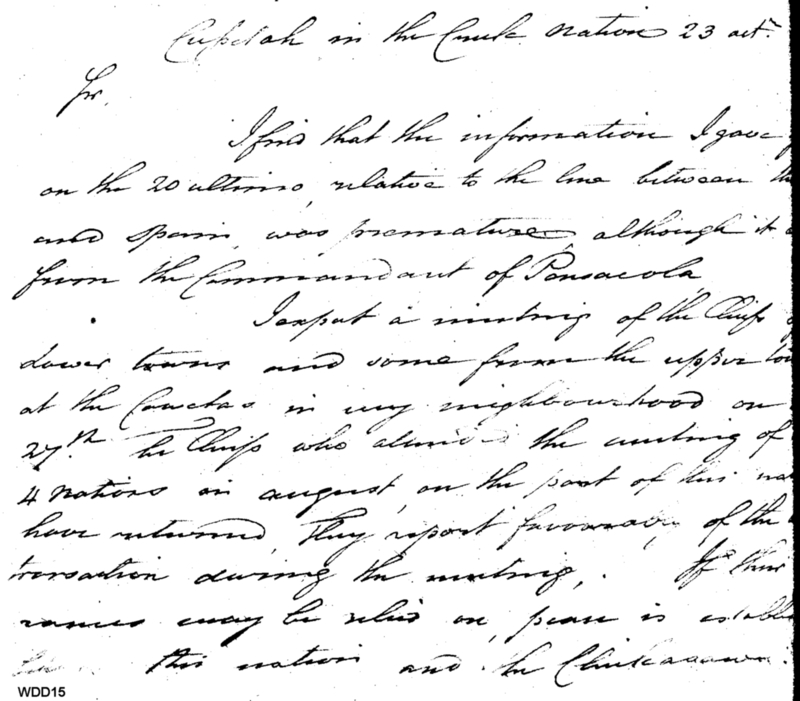 Cussetah in the Creek nation 23 oct.
Sir,
I find that the information I gave
on the 20 ultimo, relative to the line between
and Spain, was premature, although it
from the Commandant of Pensacola,
I expect a meeting of the Chiefs
Lower towns and some from the upper
at the Cowetas in my neighbourhood on
27th. The Chiefs who attended the meeting of
4 nations in august, on the part of this
have returned, They report favourably of the
transaction during the meeting,. If their
may be relied on, peace is
this nation and the Chickasaws.
WDD15